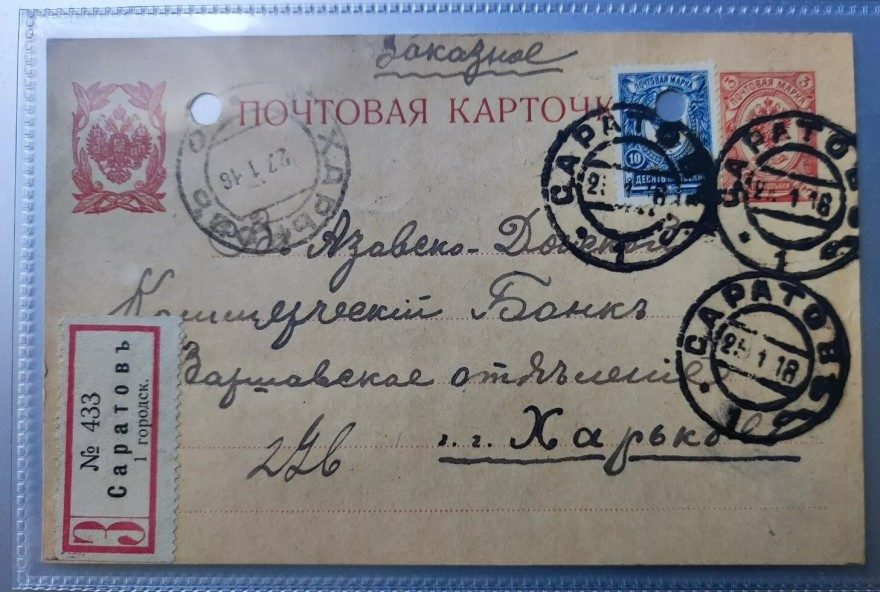 Заказное
ПОЧТОВАЯ КАРТОЧК
ПОЧТОВАЯ МАРКА
10
3
ПОЧТОВАЯ МАРКА
3
ХАРЬКОВЪ
27 1 16
САРАТОВЪ
1
САРАТОВЪ
1 16
1
САРАТОВЪ
1 16
Азовско-Донской
Коммерческій Банкъ
Варшавское отдѣленіе
г. Харьков
№ 433
Саратовъ
1 городск.
З